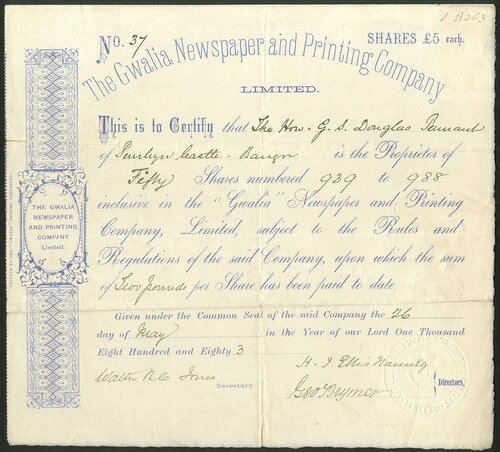 1 H263
No. 37
SHARES £5 each.
The Gwalia Newspaper and Printing Company
LIMITED.
This is to Certify that The Hon. G. S. Douglas Pennant
of Penrhyn Castle. Bangor is the Proprietor of
Fifty Shares numbered 939 to 988
inclusive in the "Gwalia" Newspaper and Printing
Company, Limited, subject to the Rules and
Regulations of the said Company, upon which the sum
of Two pounds per Share has been paid to date.
THE GWALIA
NEWSPAPER
AND PRINTING
COMPANY
Limited.
Given under the Common Seal of the said Company the 26
day of May in the Year of our Lord One Thousand
Eight Hundred and Eighty 3
Secretary
H. J. Ellis Nanney
Directors,